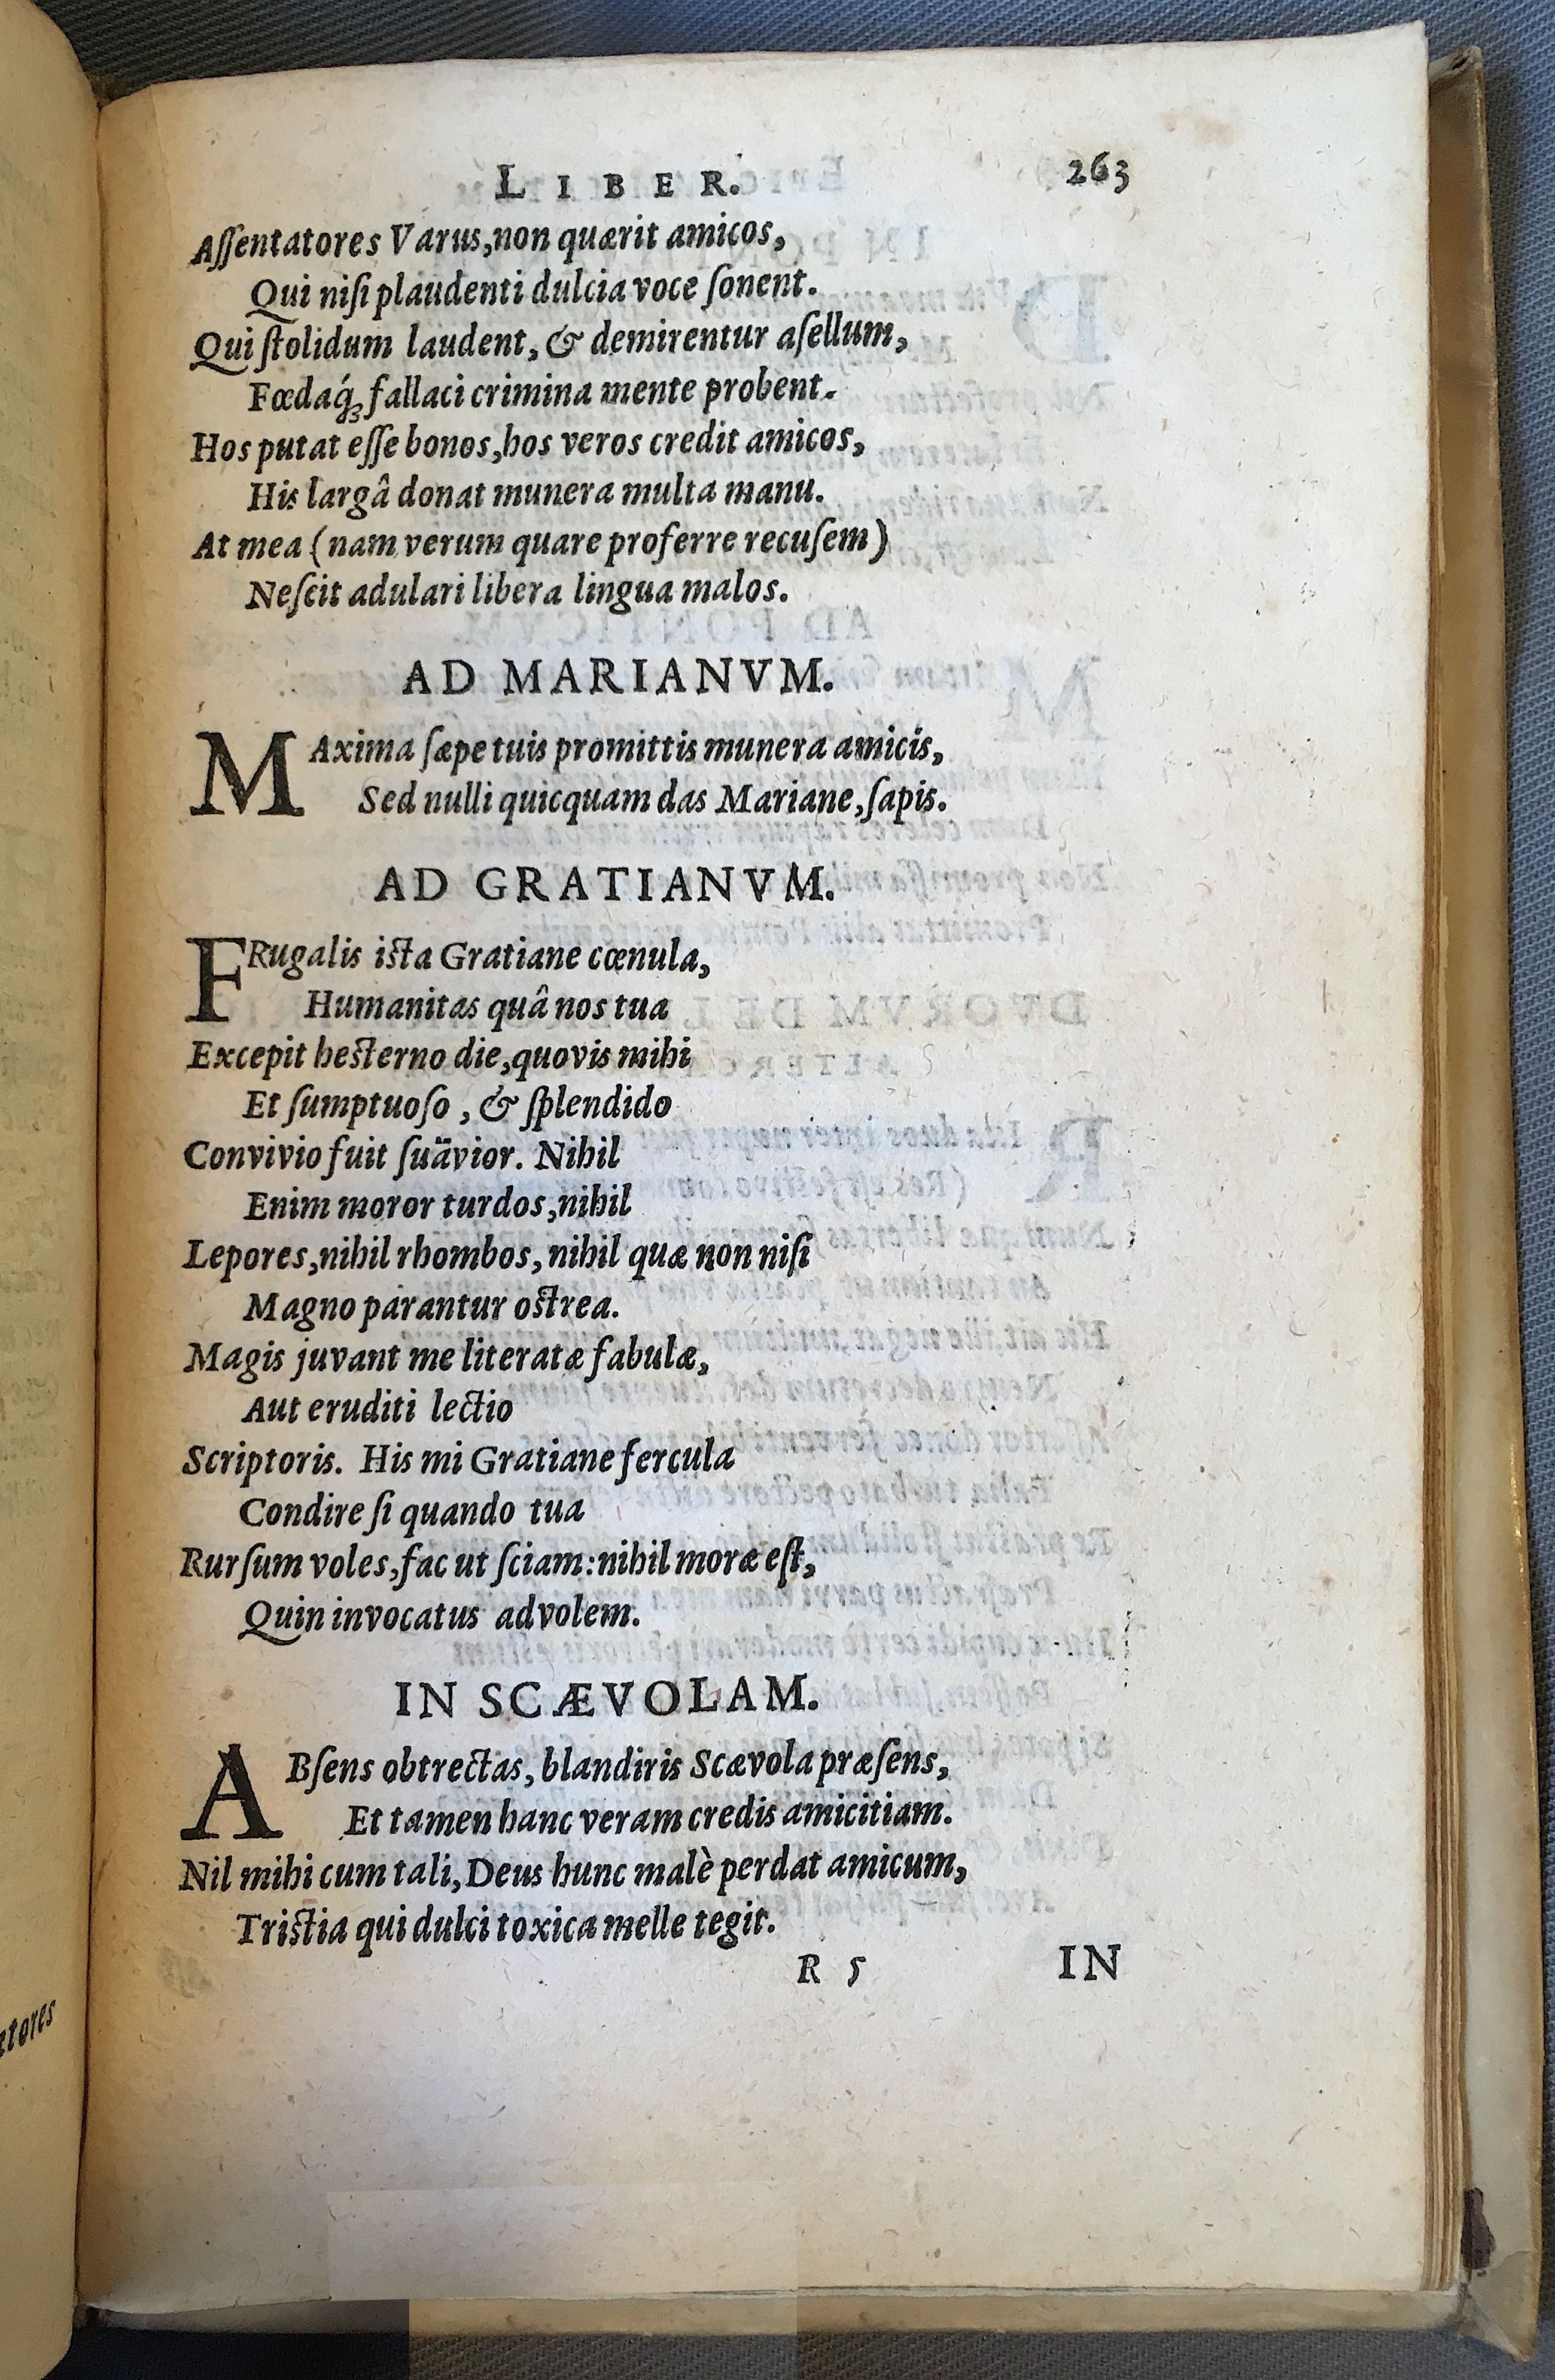 LIBER. 263
Aſſentatores Varus, non quærit amicos,
Qui niſi plaudenti dulcia voce ſonent.
Qui ſtolidum laudent, & demirentur aſellum,
Fœdaq́ꝫ fallaci crimina mente probent.
Hos putat eſſe bonos, hos veros credit amicos,
His largâ donat munera multa manu.
At mea (nam verum quare proferre recuſem)
Neſcit adulari libera lingua malos.
AD MARIANVM.
MAxima ſæpe tuis promittis munera amicis,
Sed nulli quicquam das Mariane, ſapis.
AD GRATIANVM.
FRugalis iſta Gratiane cœnula,
Humanitas quâ nos tua
Excepit heſterno die, quovis mihi
Et ſumptuoſo, & ſplendido
Convivio fuit ſuävior. Nihil
Enim moror turdos, nihil
Lepores, nihil rhombos, nihil quæ non niſi
Magno parantur oſtrea.
Magis juvant me literatæ fabulæ,
Aut eruditi lectio
Scriptoris. His mi Gratiane fercula
Condire ſi quando tua
Rurſum voles, fac ut ſciam: nihil moræ eſt,
Quin invocatus advolem.
IN SCÆVOLAM.
ABſens obtrectas, blandiris Scævola præſens,
Et tamen hanc veram credis amicitiam.
Nil mihi cum tali, Deus hunc malè perdat amicum,
Triſtia qui dulci toxica melle tegit.
R 5 IN
atores